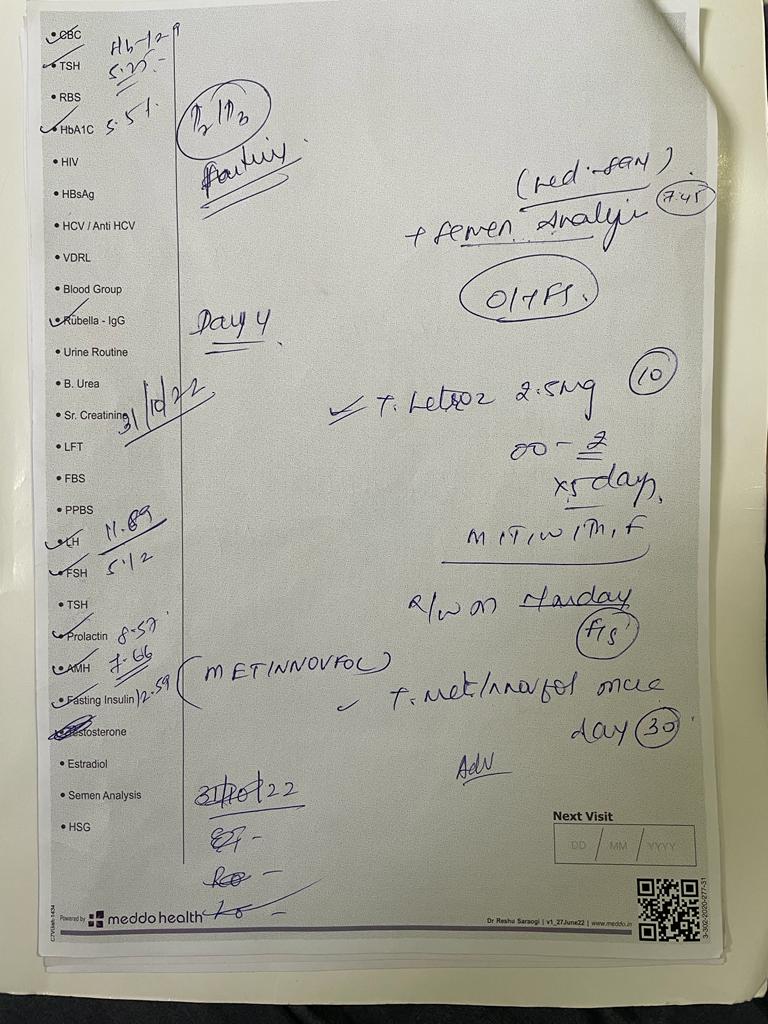 • CBC Hb-12.9
• TSH 5.25
• RBS
• HbA1C 5.5%
• HIV
• HBsAg
• HCV / Anti HCV
• VDRL
• Blood Group
• Rubella - IgG
• Urine Routine
• B. Urea
• Sr. Creatinine
31/10/22
• LFT
• FBS
• PPBS
• LH 11.89
• FSH 5.12
• TSH
• Prolactin 8.57
• AMH 7.66
• Fasting Insulin 12.59
Testosterone
• Estradiol
• Semen Analysis
• HSG
Day 4
+ Semen Analysis 7:45
✓ T. Letroz 2.5mg 10
00 - 2
x5 days
M, T, W, Th, F
R/W on Monday
(METINNOVFOL)
✓ T. Metinnovfol once
day 30
Adv
31/10/22
Next Visit
DD / MM / YYYY
C7VGieh-1434
Powered by meddo health
Dr Reshu Saraogi | v1_27June22 | www.meddo.in
3-302-2020-277-31